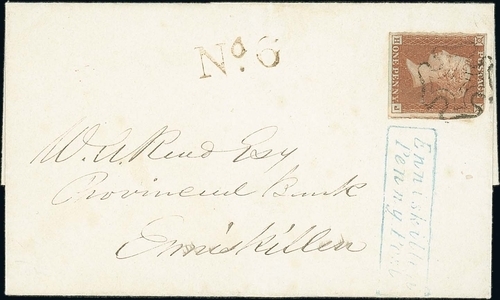 No. 6
POSTAGE
ONE PENNY
W. A. Read Esq
Provincial Bank
Enniskillen
Enniskillen
Penny Post